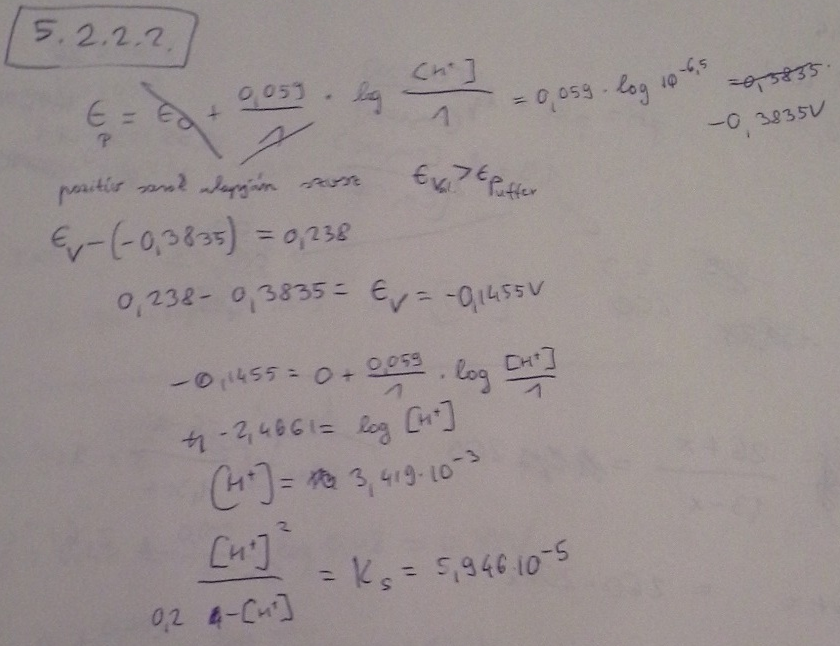 5.2.2.2.
ϵp = ϵ0 + 0,059/1 · log [H+]/1 = 0,059 · log 10^-6,5 = 0,3835.
-0,3835V
pozitív alapján ϵV. > ϵPuffer
ϵV - (-0,3835) = 0,238
0,238 - 0,3835 = ϵV = -0,1455V
-0,1455 = 0 + 0,059/1 · log [H+]/1
-2,4661 = log [H+]
[H+] = 3,419·10^-3
[H+]^2 / 0,2 - [H+] = Ks = 5,946·10^-5